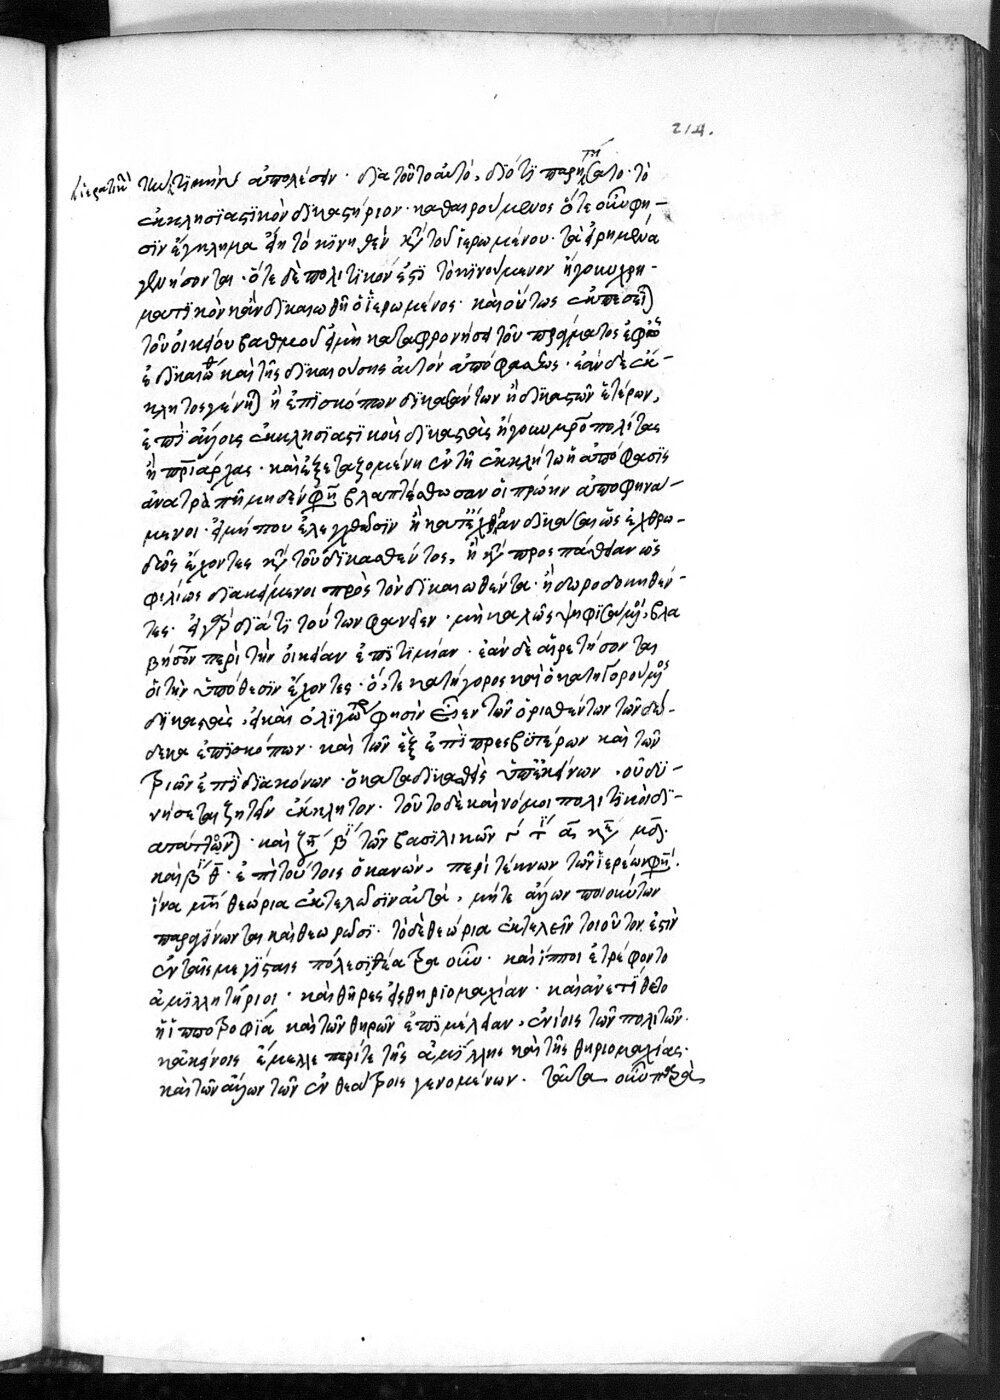 214.
ἱερατικὴν τὴν τιμὴν ἀπολέσειν· διὰ τοῦτο αὐτὸ, διότι παρῃτήσατο τὸ
ἐκκλησιαστικὸν δικαστήριον· καθαιρούμενος ὅτε οὖν φη-
σὶν ἔγκλημα εἴη τὸ κινηθὲν κατὰ τοῦ ἱερωμένου· τὰ εἰρημένα
γενήσονται· ὅτε δὲ πολιτικόν ἐστι τὸ κινούμενον ἤγουν χρη-
ματικὸν κἂν δικαιωθῇ ὁ ἱερωμένος· καὶ οὕτως ἐκπεσεῖται
τοῦ οἰκείου βαθμοῦ εἰ μὴ καταφρονήσει τοῦ πράγματος ἐφ' ᾧ
ἐδικαιώθη καὶ τῆς δικαιούσης αὐτὸν ἀποφάσεως· ἐὰν δὲ ἔκ-
κλητος γένηται ἢ ἐπισκόπων δικασάντων ἢ δικαστῶν ἑτέρων,
ἐπὶ ἄλλοις ἐκκλησιαστικοῖς δικασταῖς ἤγουν μητροπολίτας
ἢ πατριάρχας· καὶ ἐξεταζομένη ἐν τῇ ἐκκλήτω ἡ ἀπόφασις
ἀνατραπῇ μηδέν φησι βλαπτέσθωσαν οἱ πρώην ἀποφηνά-
μενοι· εἰ μή που ἐλεγχθῶσιν ἢ κατ' ἔχθραν δικάσαι ὡς ἐχθρω-
δῶς ἔχοντες κατὰ τοῦ δικασθέντος, ἢ κατὰ προσπάθειαν ὡς
φιλίως διακείμενοι πρὸς τὸν δικαιωθέντα· ἢ δωροδοκηθέν-
τες· εἰ γὰρ διά τι τούτων φανεῖεν· μὴ καλῶς ψηφισάμενοι, βλα
βήσονται περὶ τὴν οἰκείαν ἐπιτιμίαν· ἐὰν δὲ αἱρετήσονται
οἱ τὴν ὑπόθεσιν ἔχοντες· ὅ, τε κατήγορος καὶ ὁ κατηγορούμενος
δικαστὰς, εἰ καὶ ὀλίγωτέροι φησὶν εἶεν τῶν ὁρισθέντων τῶν δώ-
δεκα ἐπισκόπων· καὶ τῶν ἓξ ἐπὶ πρεσβυτέρων καὶ τῶν
τριῶν ἐπὶ διακόνων· ὁ καταδικασθεὶς ὑπ' ἐκείνων, οὐ δυ-
νήσεται ζητεῖν ἔκκλητον· τοῦτο δὲ καὶ νόμοι πολιτικοὶ δι-
καὶ τούτοις ὁ κανών, περὶ τέκνων τῶν ἱερέων φησί.
ἵνα μήτε θεώρια ἐκτελῶσιν αὐτά, μήτε ἄλλων ποιούντων
παραγίνωνται καὶ θεωρῶσι· τὸ δὲ θεώρια ἐκτελεῖν τοιοῦτον ἐστὶν
ἐν ταῖς μεγίσταις πόλεσι θέατρα οὖν· καὶ ἵπποι ἐτρέφοντο
ἁμιλλητήριοι· καὶ θῆρες εἰς θηριομαχίαν· καὶ ἀνετίθετο
ἡ ἱπποτροφία καὶ τῶν θηρῶν ἐπιμέλειαν, ἐνίοις τῶν πολιτῶν·
κἀκείνοις ἔμελλε περί τε τῆς ἁμίλλης καὶ τῆς θηριομαχίας·
καὶ τῶν ἄλλων τῶν ἐν θεάτροις γενομένων· ταῦτα οὖν παρὰ